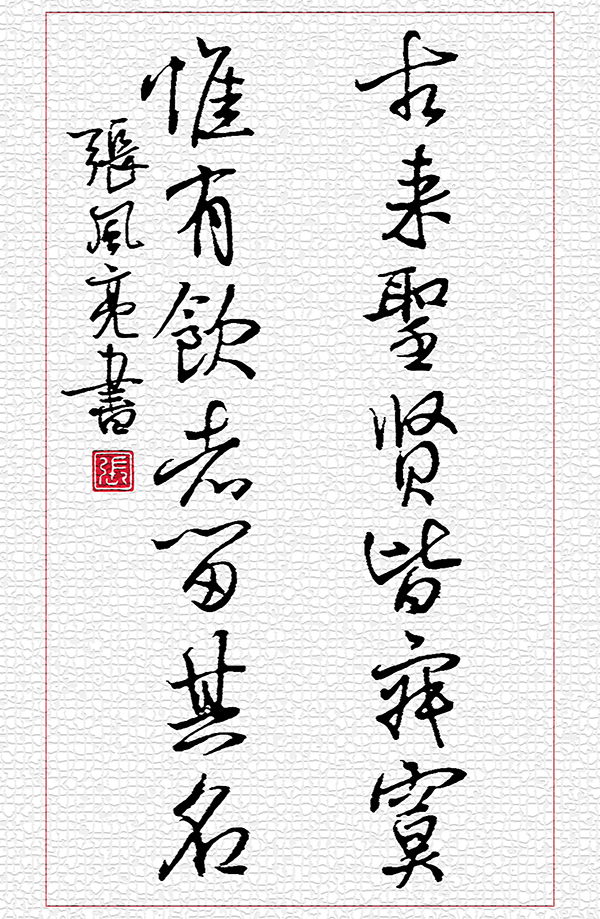 古来聖贤皆寂寞
惟有飲者留其名
張風亮書
張